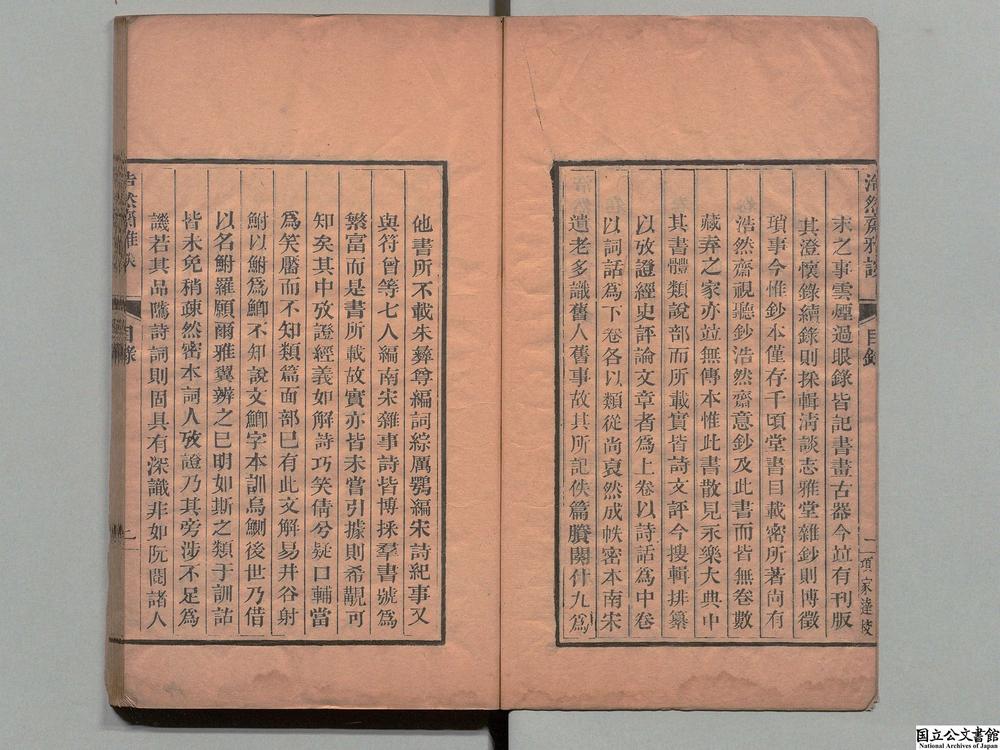 浩然齋雅談 目錄 二 項家達校
末之事雲煙過眼錄皆記書畫古器今竝有刊版
其澄懷錄續錄則採輯淸談志雅堂雜鈔則博徵
瑣事今惟鈔本僅存千頃堂書目載密所著尙有
浩然齋視聽鈔浩然齋意鈔及此書而皆無卷數
藏弆之家亦竝無傳本惟此書散見永樂大典中
其書體類說部而所載實皆詩文評今搜輯排纂
以攷證經史評論文章者爲上卷以詩話爲中卷
以詞話爲下卷各以類從尙裒然成帙密本南宋
遺老多識舊人舊事故其所記佚篇賸闋什九爲
他書所不載朱彝尊編詞綜厲鶚編宋詩紀事又
與符曾等七人編南宋雜事詩皆博採羣書號爲
繁富而是書所載故實亦皆未嘗引據則希覯可
知矣其中攷證經義如解詩巧笑倩兮疑口輔當
爲笑靨而不知類篇面部已有此文解易井谷射
鮒以鮒爲鯽不知說文鯽字本訓烏鰂後世乃借
以名鮒羅願爾雅翼辨之已明如斯之類于訓詁
皆未免稍疎然密本詞人攷證乃其旁涉不足爲
譏若其品隲詩詞則固具有深識非如阮閱諸人
浩然齋雅談 目錄 二
国立公文書館
National Archives of Japan